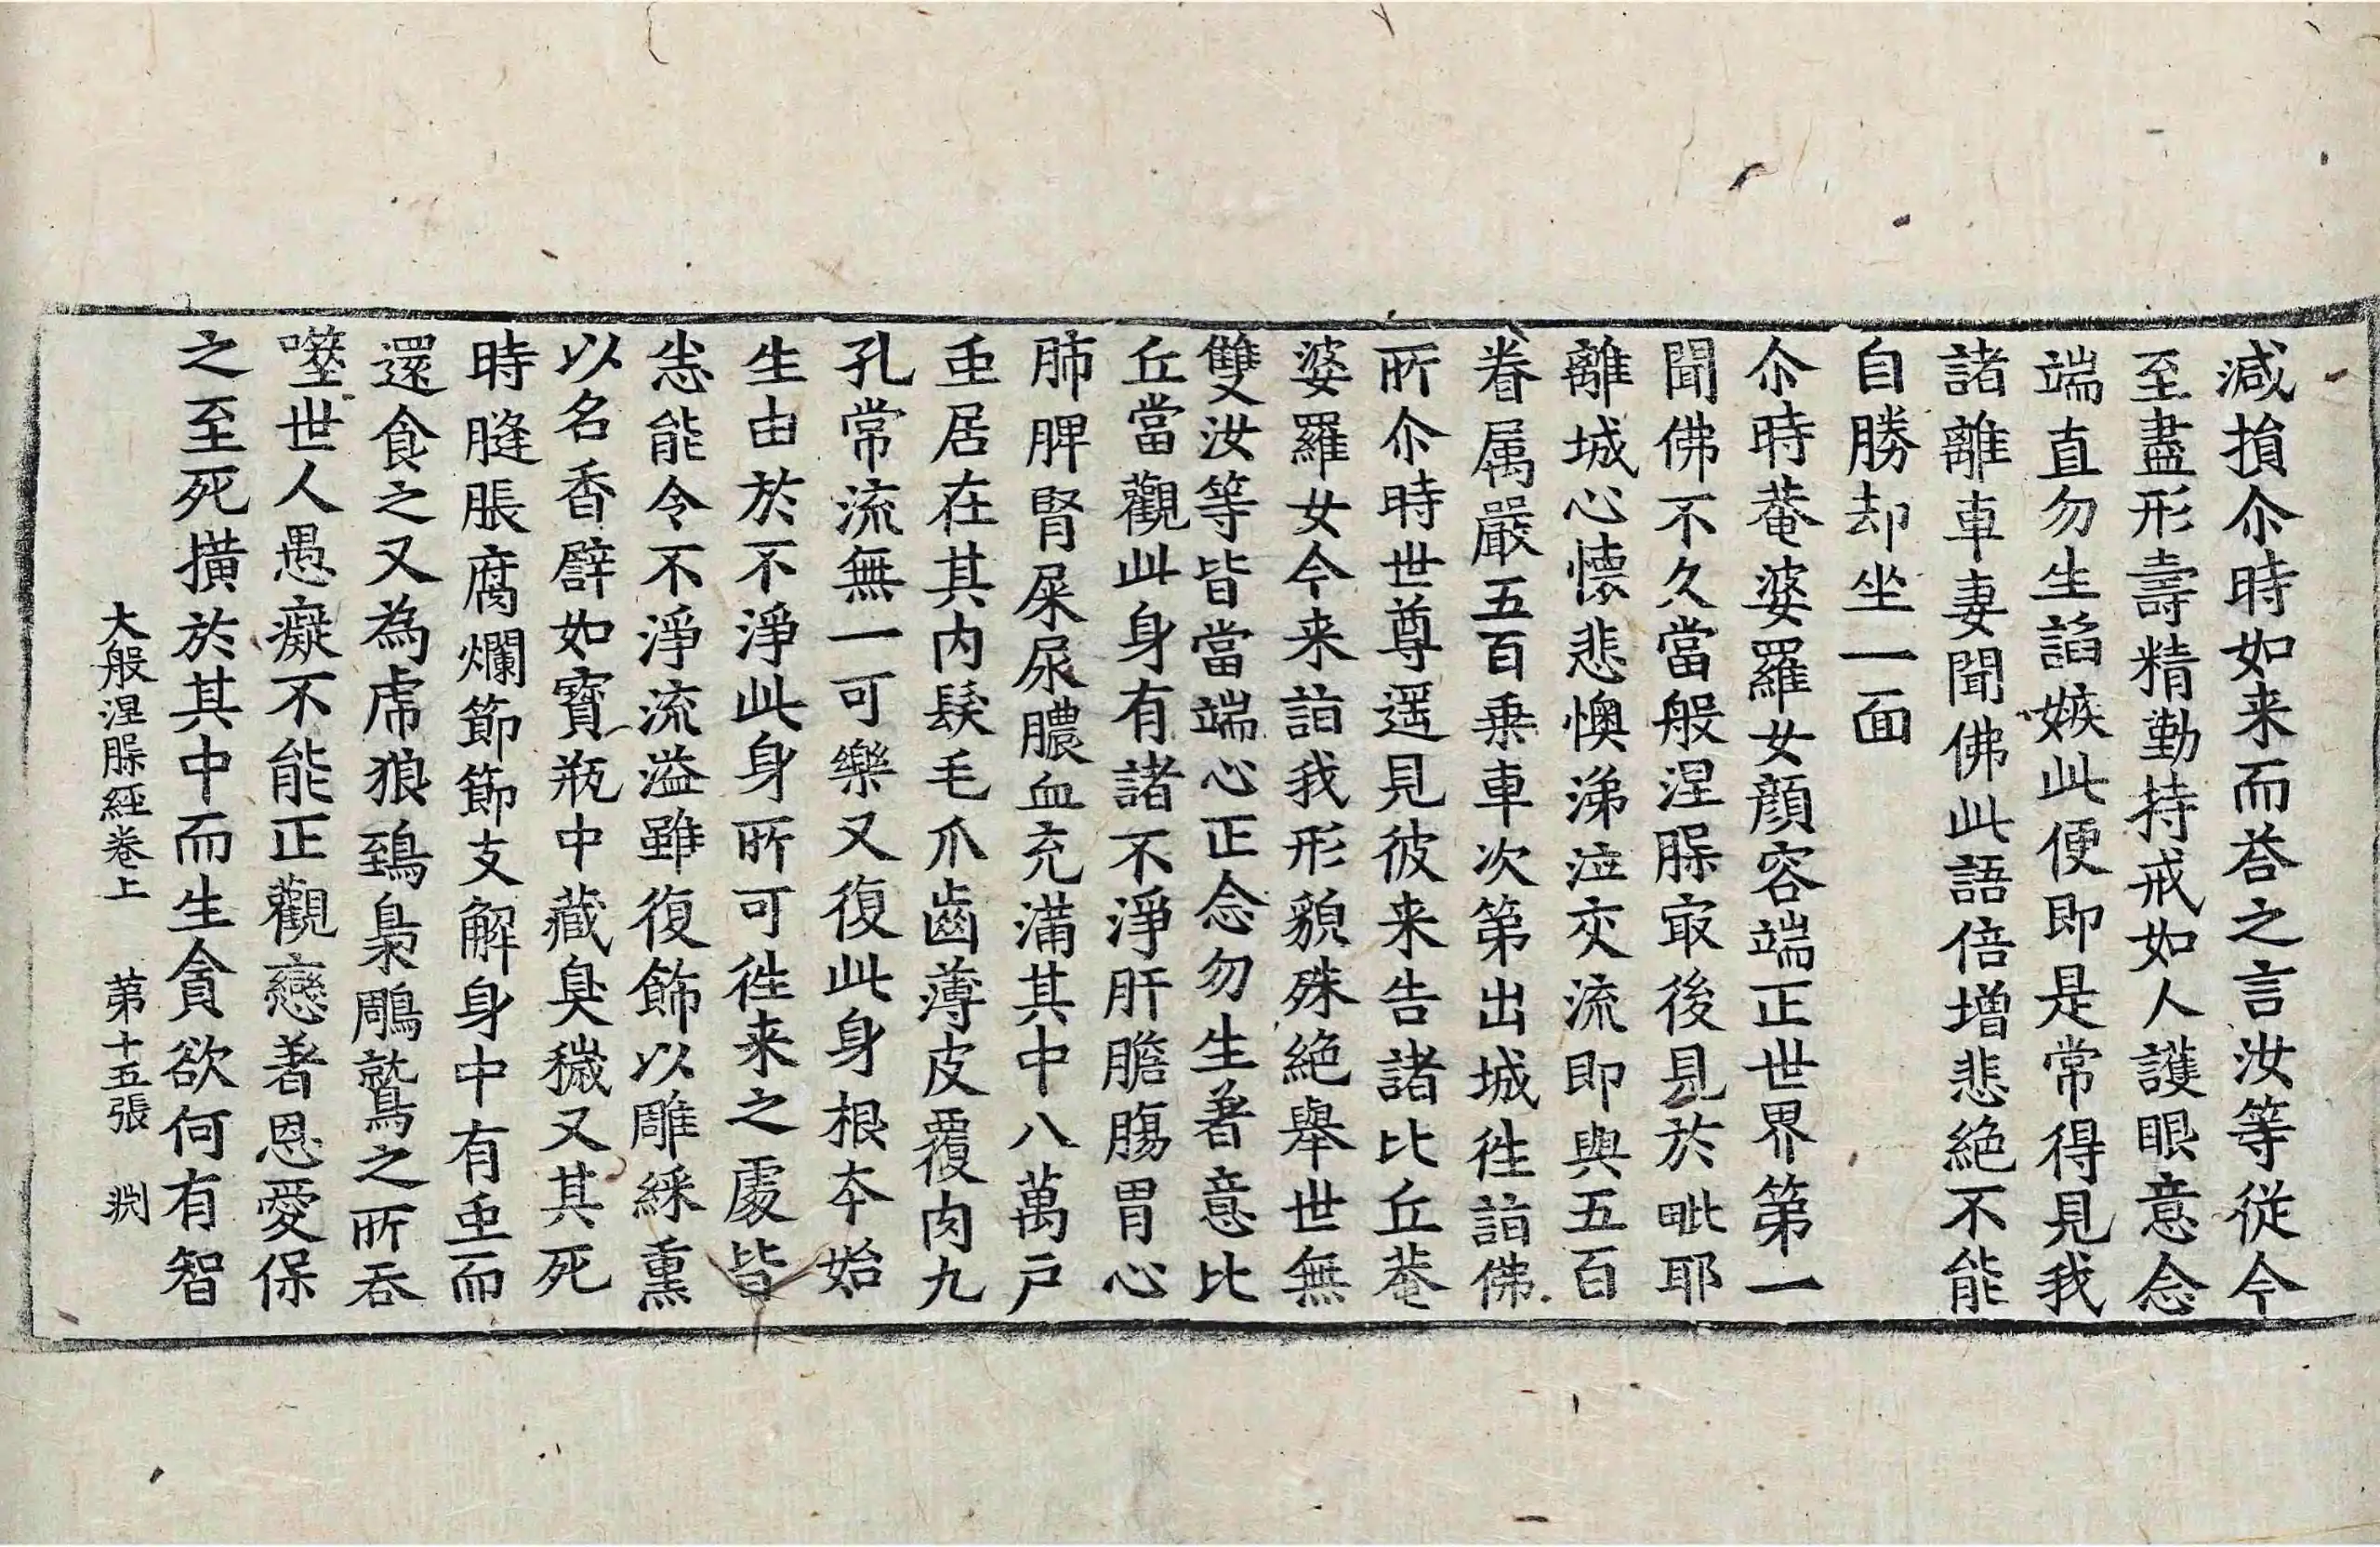 減損尒時如来而荅之言汝等従今
至盡形壽精勤持戒如人護眼意念
端直勿生諂嫉此便即是常得見我
諸離車妻聞佛此語倍增悲絶不能
自勝却坐一面
尒時菴婆羅女顔容端正世界第一
聞佛不久當般涅槃㝡後見於毗耶
離城心懐悲懊涕泣交流即與五百
眷属嚴五百乗車次第出城徃詣佛
所尒時世尊遥見彼来告諸比丘菴
婆羅女今来詣我形貌殊絶舉世無
雙汝等皆當端心正念勿生著意比
丘當觀此身有諸不淨肝膽膓胃心
肺脾腎屎尿膿血充滿其中八萬户
䖝居在其内髮毛爪齒薄皮覆肉九
孔常流無一可樂又復此身根夲始
生由於不淨此身所可徃来之處皆
悉能令不淨流溢雖復飾以雕綵熏
以名香譬如寳瓶中藏臭穢又其死
時膖脹腐爛節節支解身中有䖝而
還食之又為虎狼鵄梟鵰鷲之所吞
噬世人愚癡不能正觀戀著恩愛保
之至死横於其中而生貪欲何有智
大般涅槃經卷上　第十五張　渕